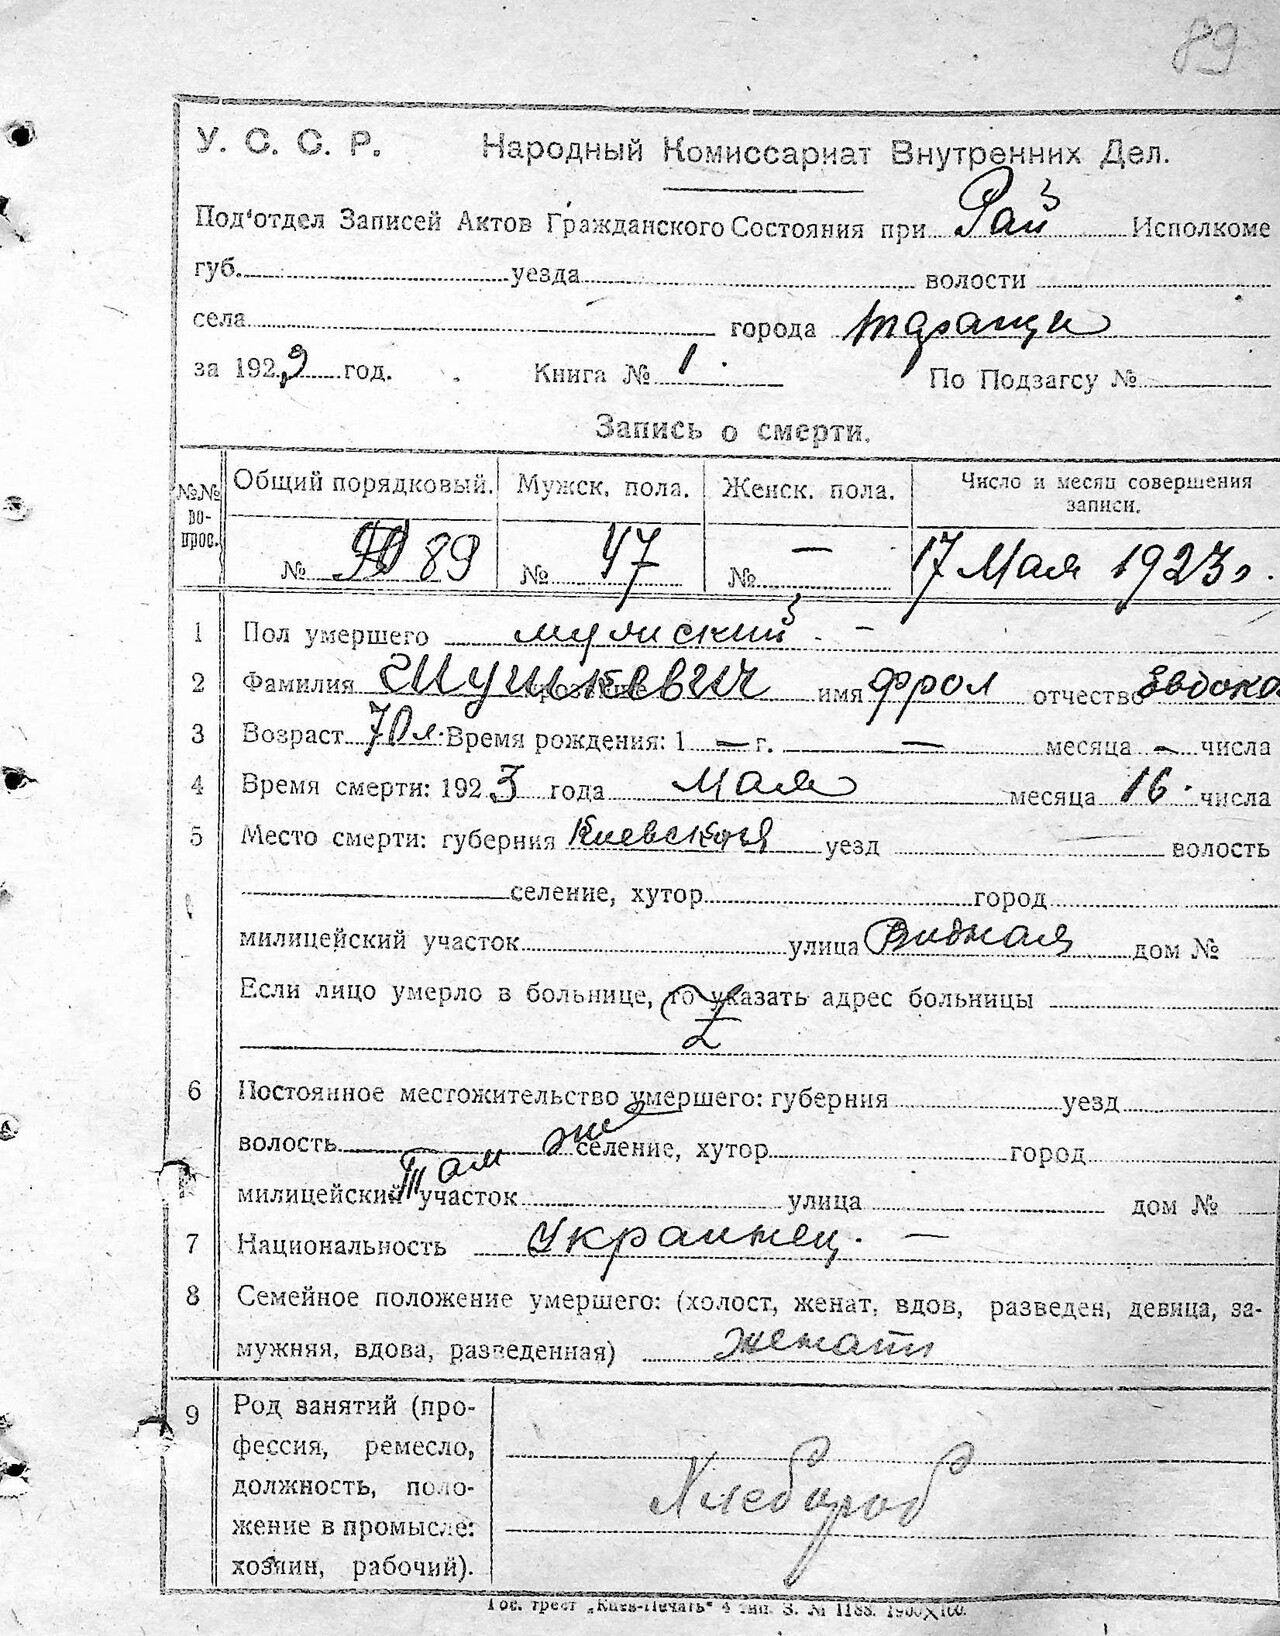 89
У. С. С. Р. Народный Комиссариат Внутренних Дел.
Под'отдел Записей Актов Гражданского Состояния при Рай Исполкоме
губ. уезда волости
села города Таращи
за 1923 год. Книга № 1. По Подзагсу №
Запись о смерти.
№№ во- прос. Общий порядковый. Мужск. пола. Женск. пола. Число и месяц совершения записи.
№ 89 № 47 № — 17 Мая 1923 г.
1 Пол умершего мужский. —
2 Фамилия имя Фрол отчество Евдоко
3 Возраст 70 л. Время рождения: 1 — г. — месяца — числа
4 Время смерти: 1923 года Мая месяца 16. числа
5 Место смерти: губерния Киевская уезд волость
селение, хутор город
милицейский участок улица дом №
Если лицо умерло в больнице, то указать адрес больницы
6 Постоянное местожительство умершего: губерния уезд
волость же селение, хутор город
милицейский Там участок улица дом №
7 Национальность Украинец. —
8 Семейное положение умершего: (холост, женат, вдов, разведен, девица, за-
мужняя, вдова, разведенная) женат
9 Род занятий (про-
фессия, ремесло,
должность, поло-
жение в промысле:
хозяин, рабочий).
Хлебороб
Гос. трест „Киев-Печать“ 4 тип. З. № 1188. 1900×100.